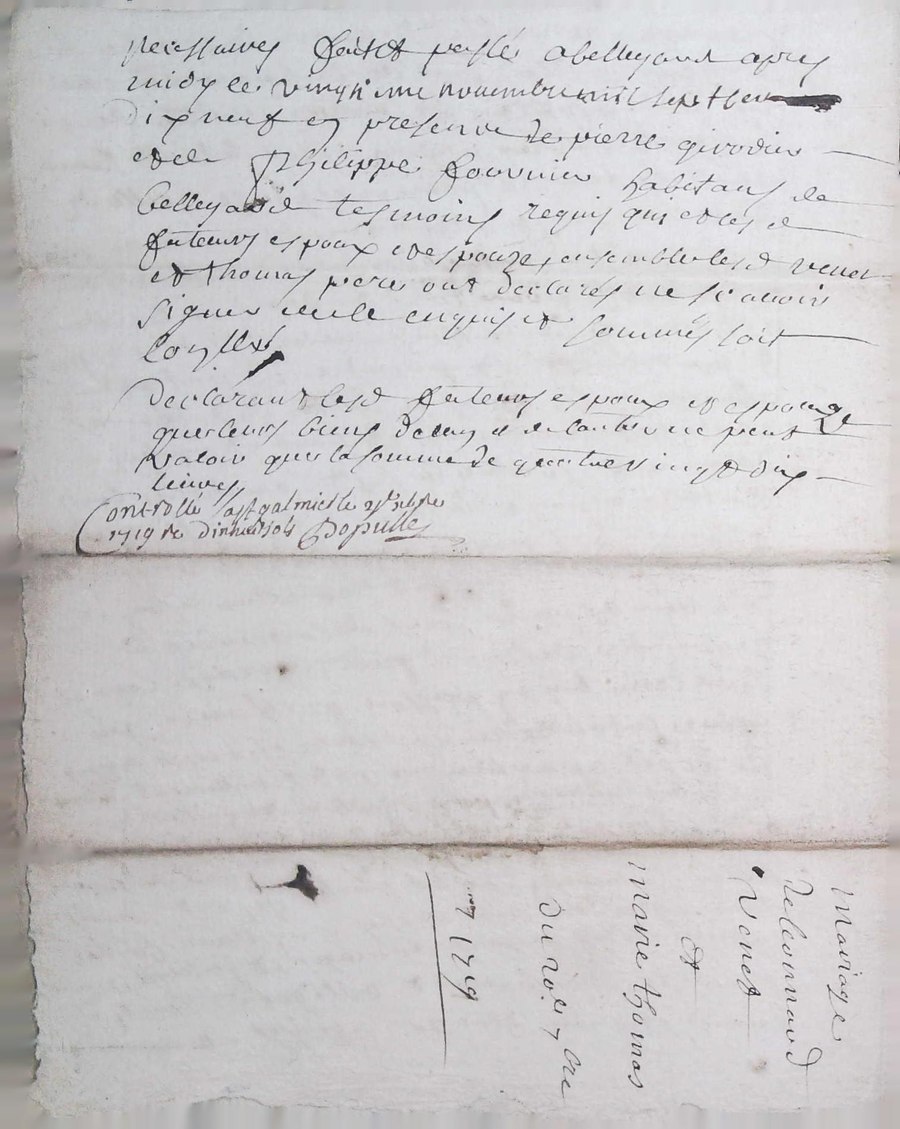 necessaires fait et passé a bellegarde apres
midy le vingtieme novembre mil sept cens
dix neuf en presence de pierre girodier
et de Philippe fournier habitans de
bellegarde tesmoins requis qui et lesd
futeurs espoux et espouze ensemble lesd venet
et thomas pere ont declarés ne scavoir
signer de ce enquis et sommés soit
Declarant lesd futeurs espoux et espouze
que leurs biens de l'un et de l'autre ne peut
valoir que la somme de quatre vingt dix
livres
Controllé a st galmier le
1719 Dopulle
Mariage
de leonnard
venet
et
Marie thomas
Du
1719